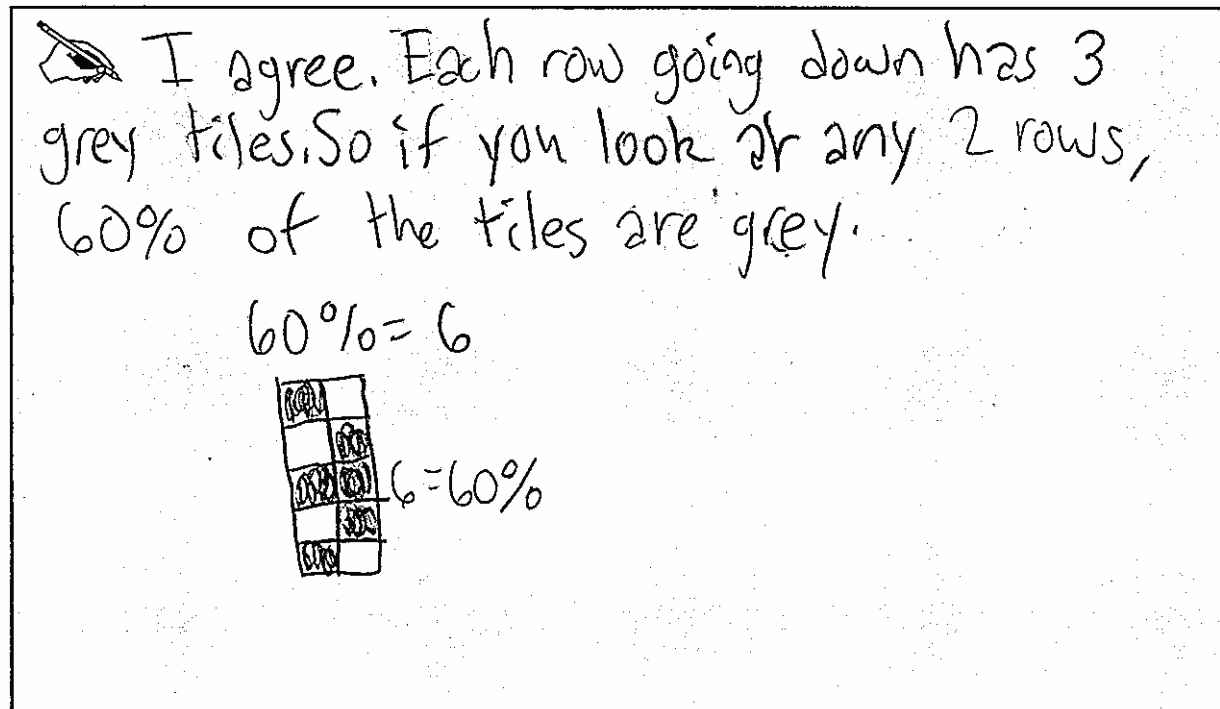 I agree. Each row going down has 3
grey tiles. So if you look at any 2 rows,
60% of the tiles are grey.
60% = 6
6 = 60%